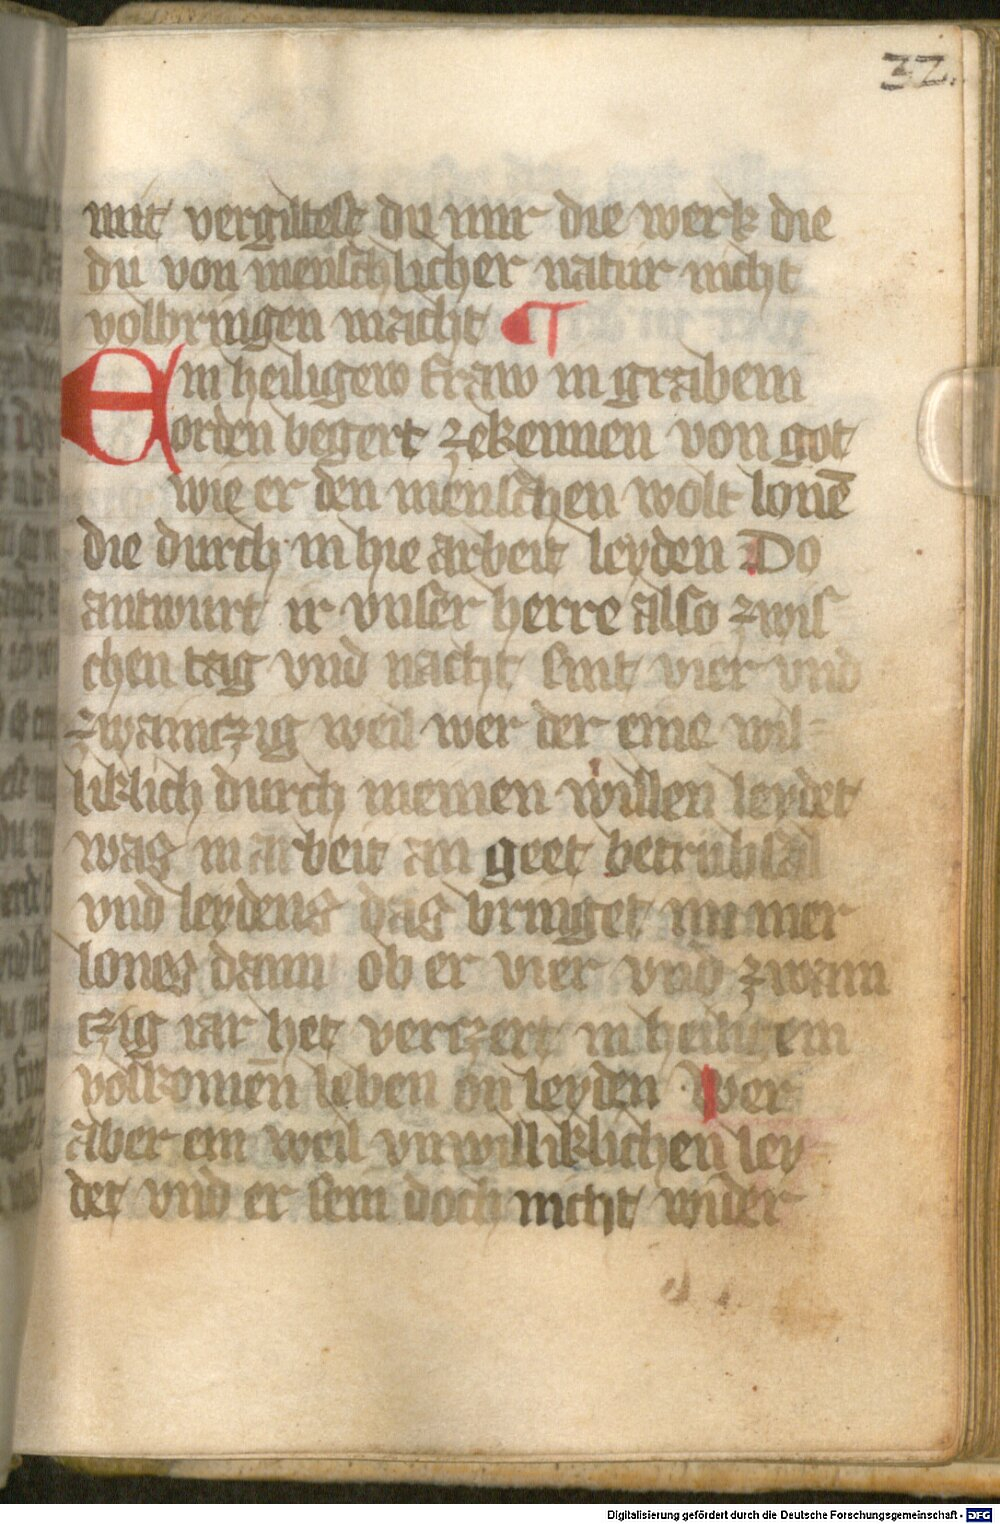 32.
mit vergiltest du mir die werk die
du von menschlicher natur nicht
volbringen macht ¶
Ein heiligew fraw in grabem
orden begert zekennen von got
wie er den menschen wolt lonē
die durch in hie arbeit leyden Do
antwurt ir vnser herre also zwis
chen tag vnd nacht sint vier vnd
zwainczig weil wer der eine wil-
liklich durch meinen willen leydet
was in arbeit an geet betrübsal
vnd leydens das bringet im mer
lones dann ob er vier vnd zwain
czig iar het verczert in heiligem
volkomēn leben on leyden Wer
aber ein weil vnwilliklichen ley
det vnd er sein doch nicht wider
Digitalisierung gefördert durch die Deutsche Forschungsgemeinschaft - DFG